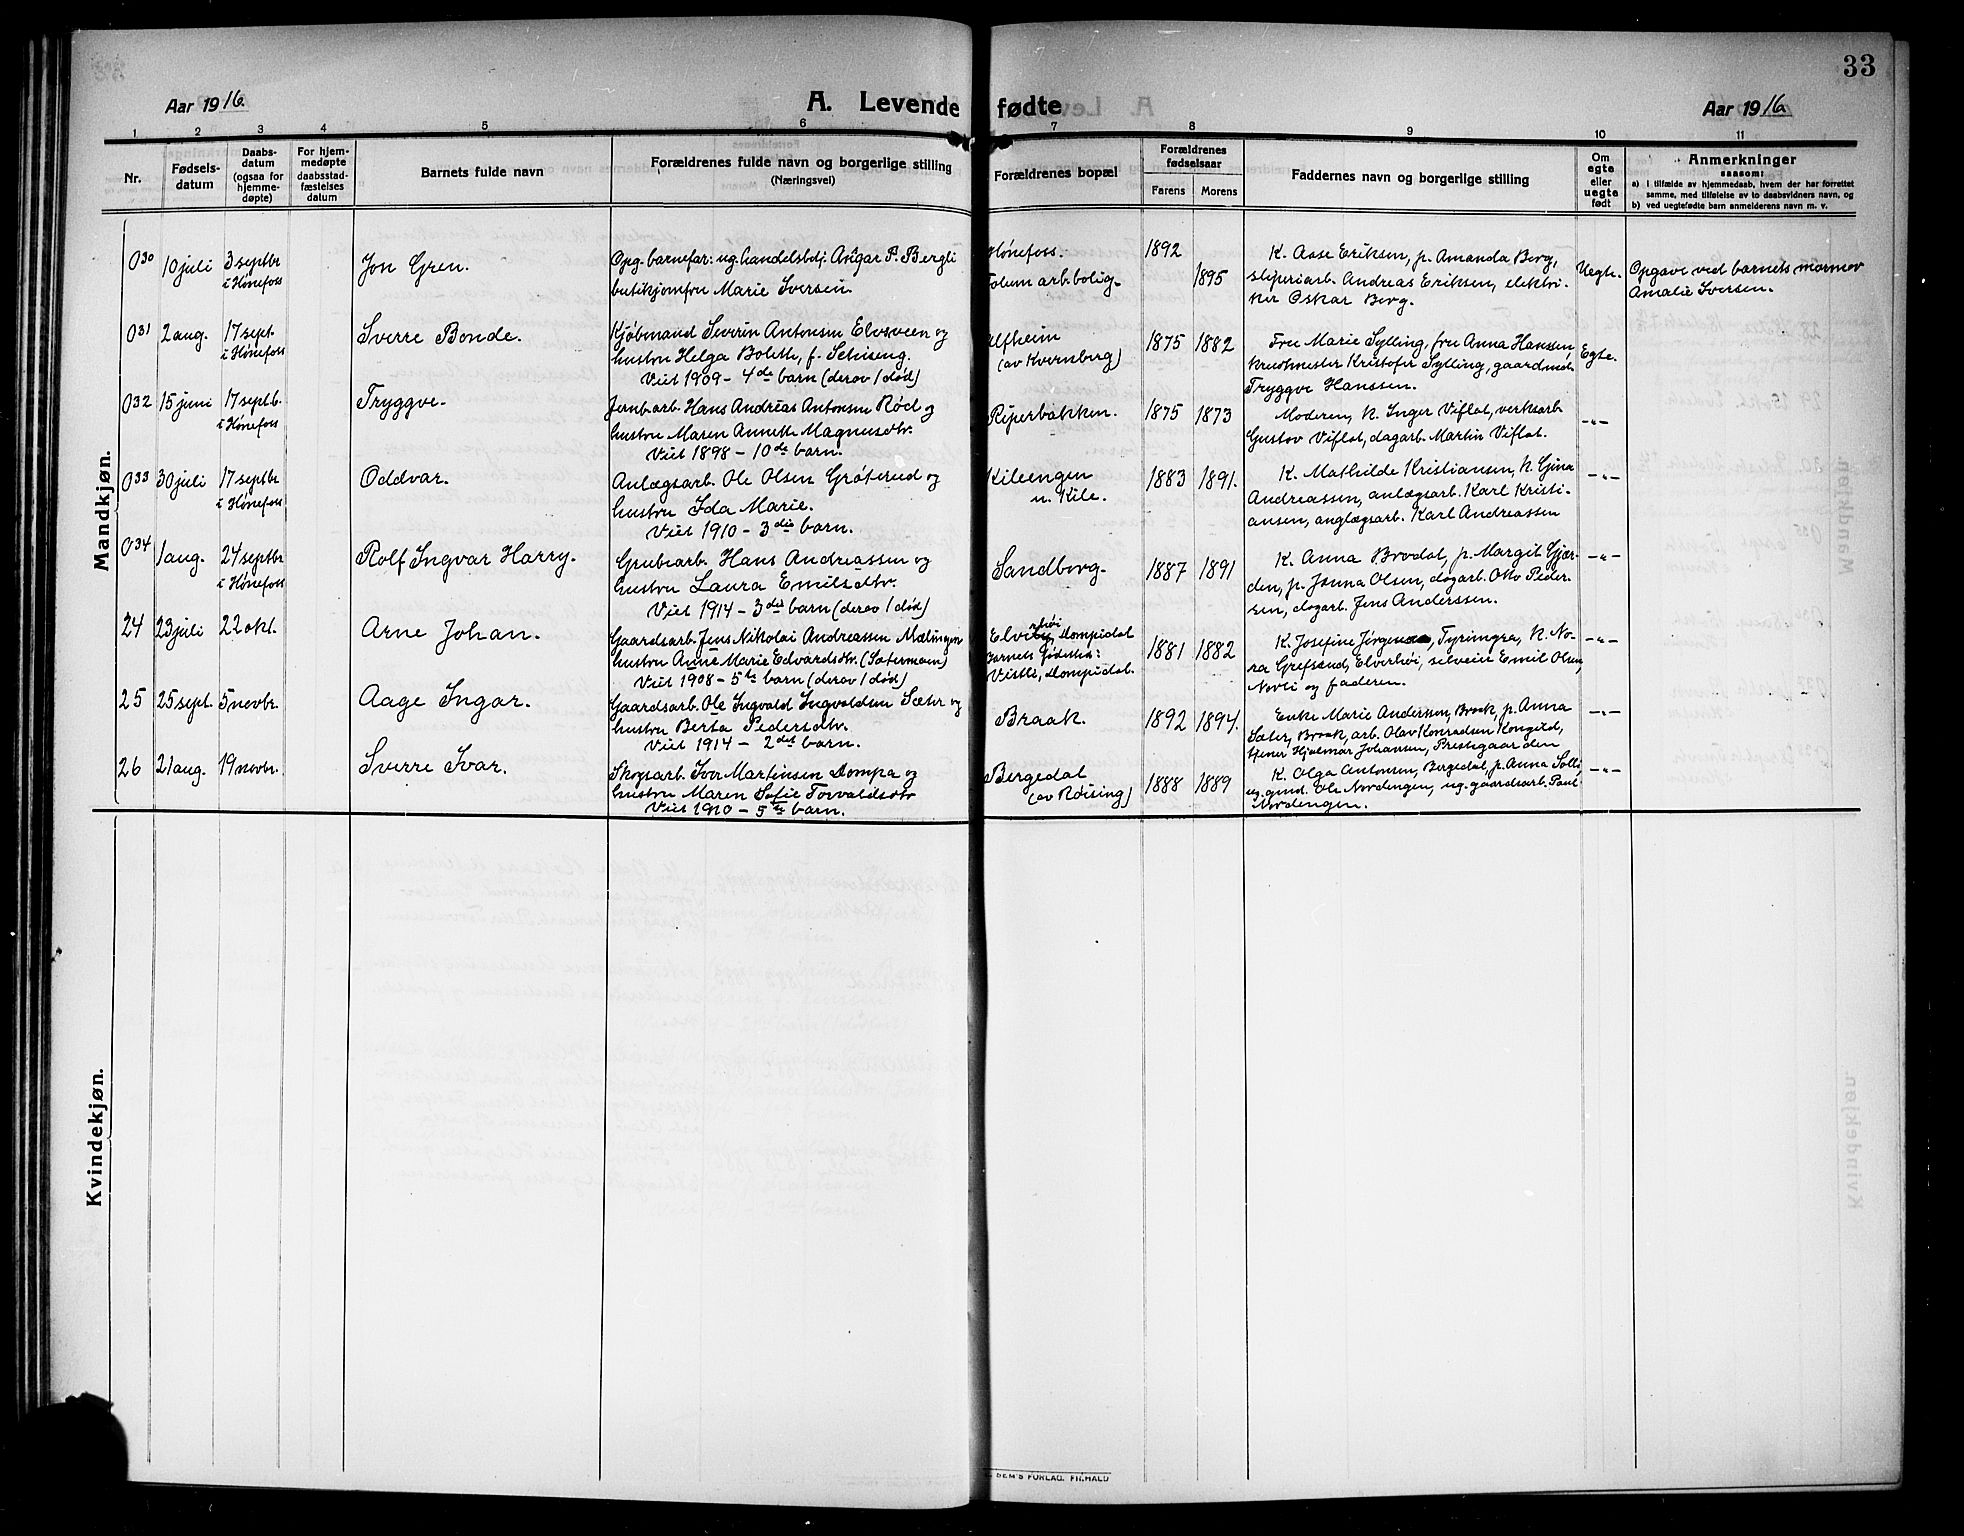 33
Aar 1916.
A. Levende fødte
Aar 1916
1 2 3 4 5 6 7 8 9 10 11
Nr.
Fødselsdatum
Daabsdatum (ogsaa for hjemmedøpte)
For hjemmedøpte daabsstadfæstelses datum
Barnets fulde navn
Forældrenes fulde navn og borgerlige stilling
(Næringsvei)
Forældrenes bopæl
Forældrenes fødselsaar
Farens Morens
Faddernes navn og borgerlige stilling
Om egte eller uegte født
Anmerkninger
saasom:
a) i tilfælde av hjemmedaab, hvem der har forrettet
samme, med tilføielse av to daabsvidners navn, og
b) ved uegtefødte barn anmelderens navn m. v.
Mandkjøn.
030 10 juli 3 septbr i Hønefoss Jon Gren.
Opg. barnefar: ug. handelsbetj. Ansgar P. Bergli
butikjomfru Marie Iversen.
Hønefoss. 1892
Folum arb.bolig. 1895
K. Aase Eriksen, p. Amanda Berg,
sliperiarb. Andreas Eriksen, elektri-
ker Oskar Berg.
Uegte.
Opgave ved barnets mormor
Amalie Iversen.
031 2 aug. 17 sept. i Hønefoss Sverre Bonde.
Kjøbmand Severin Antonsen Elvsveen og
hustru Helga Bolette, f. Schieseng.
Viet 1909 - 4de barn (derav 1 død)
Alfheim
(av Kvernberg)
1875 1882
Fru Marie Sylling, fru Anna Hanssen,
Kristofer Sylling, gaardmd.
Tryggve Hanssen.
Egte.
032 15 juni 17 septb. i Hønefoss Tryggve.
Jernb.arb. Hans Andreas Antonsen Rød og
hustru Maren Annette Magnusdtr.
Viet 1898 - 10de barn.
Piperbakken. 1875 1873
Moderen, k. Inger Viflat, verksarb
Gustav Viflat, dagarb. Martin Viflat.
-"-
033 30 juli 17 septbr i Hønefoss Oddvar.
Anlægsarb. Ole Olsen Grøterud og
hustru Ida Marie.
Viet 1910 - 3die barn.
Kileengen
u. Kile.
1883 1891.
K. Mathilde Kristiansen, k. Gina
Andreassen, anlægsarb. Karl Kristi-
ansen, anglægsarb. Karl Andreassen
-"-
034 1 aug. 24 septbr i Hønefoss Rolf Ingvar Harry.
Grubearb. Hans Andreassen og
hustru Laura Emilsdtr.
Viet 1914 - 3die barn (derav 1 død)
Sandborg. 1887 1891
K. Anna Brodal, p. Margit Gjær-
den, p. Janna Olsen, dagarb. Otto Peder-
sen, dagarb. Jens Anderssen.
-"-
24 23 juli 22 okt. Arne Johan.
Gaardsarb. Jens Nikolai Andreassen Mælingen
hustru Anne Marie Edvardsdtr. (Sætermoen)
Viet 1908 - 5te barn (derav 1 død)
Elverhøi, Dompidal
Barnets fødested:
Vestli, Dompidal.
1881 1882
K. Josefine Jørgensen, Tyrimyra, k. No-
ra Grefsrud, Elverhøi, selveier Emil Olsen,
Novli og faderen.
-"-
25 25 sept. 5 novbr. Aage Ingar.
Gaardsarb. Ole Ingvald Ingvaldsen Sæter og
hustru Berta Pedersdtr.
Viet 1914 - 2det barn.
Braak. 1892 1894.
Enke Marie Anderssen, Braak, p. Anna
Sæter, Braak, arb. Olav Konradsen Kongerud,
tjener Hjalmar Johansen, Prestegaarden
-"-
26 21 aug. 19 novbr. Sverre Ivar.
Skogsarb. Iver Martinsen Dompa og
hustru Maren Sofie Torvaldsdtr
Viet 1910 - 5te barn.
Bergedal
(av Røising)
1888 1889
K. Olga Antonsen, Bergedal, p. Anna Solli,
ug. gmd. Ole Nordengen, ug. gaardsarb. Paul
Nordengen.
-"-
Kvindekjøn.
SEM'S FORLAG. FR.HALD